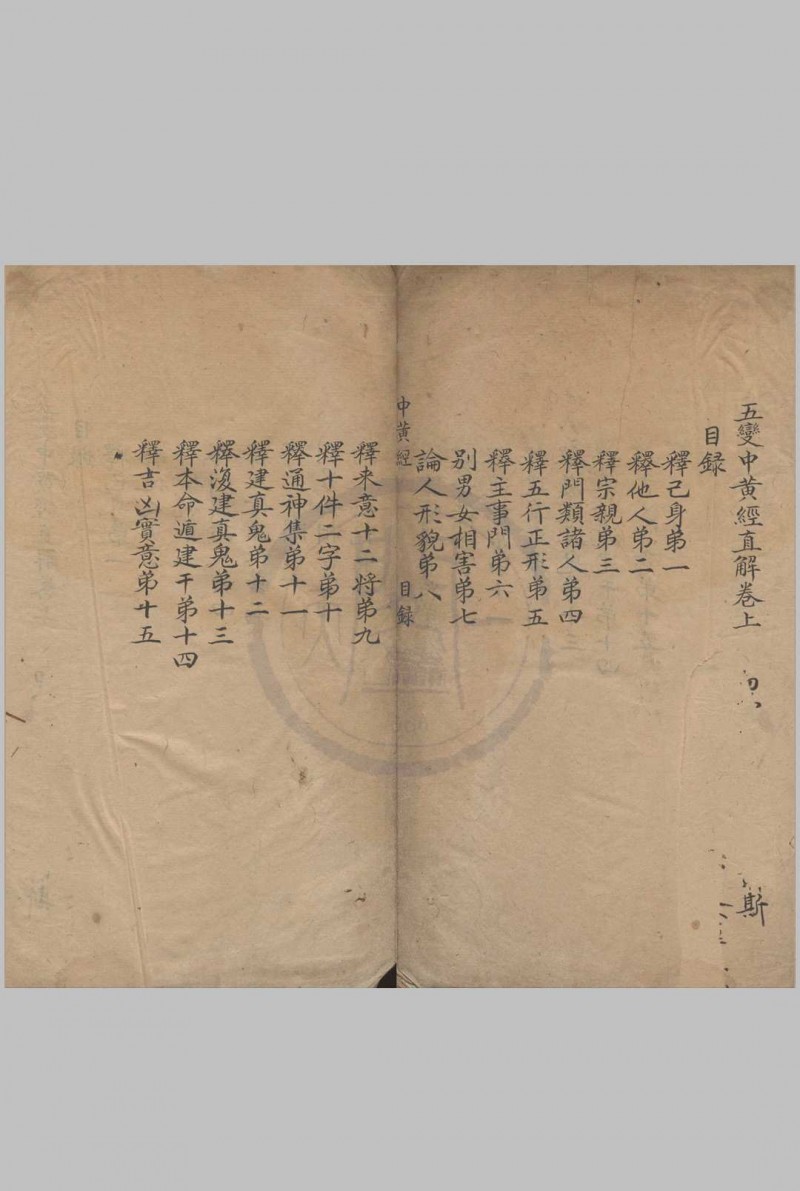 五變中黄經直解卷上
目録
釋己身弟一
釋他人弟二
釋宗親弟三
釋門類諸人弟四
釋五行正形弟五
釋主事門弟六
別男女相害弟七
論人形貌弟八
中黄經 目録
釋来意十二将弟九
釋十件二字弟十
釋通神集弟十一
釋建真鬼弟十二
釋復建真鬼弟十三
釋本命遁建干弟十四
釋吉凶實意弟十五
斯